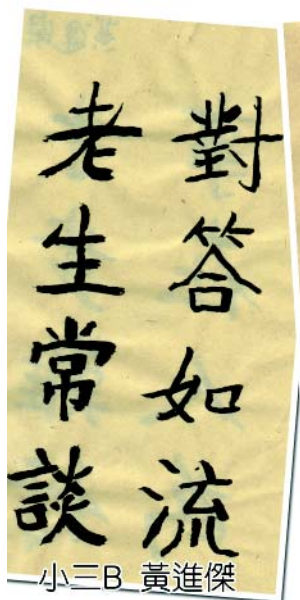 對答如流
老生常談
小三B 黃進傑